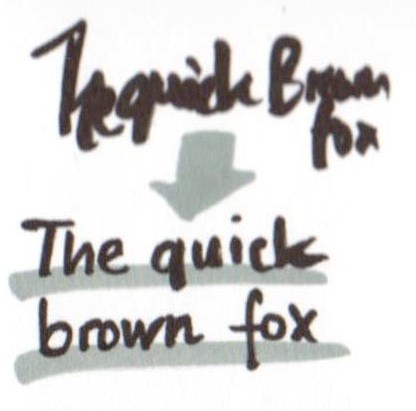 The quick Brown
fox
The quick
brown fox